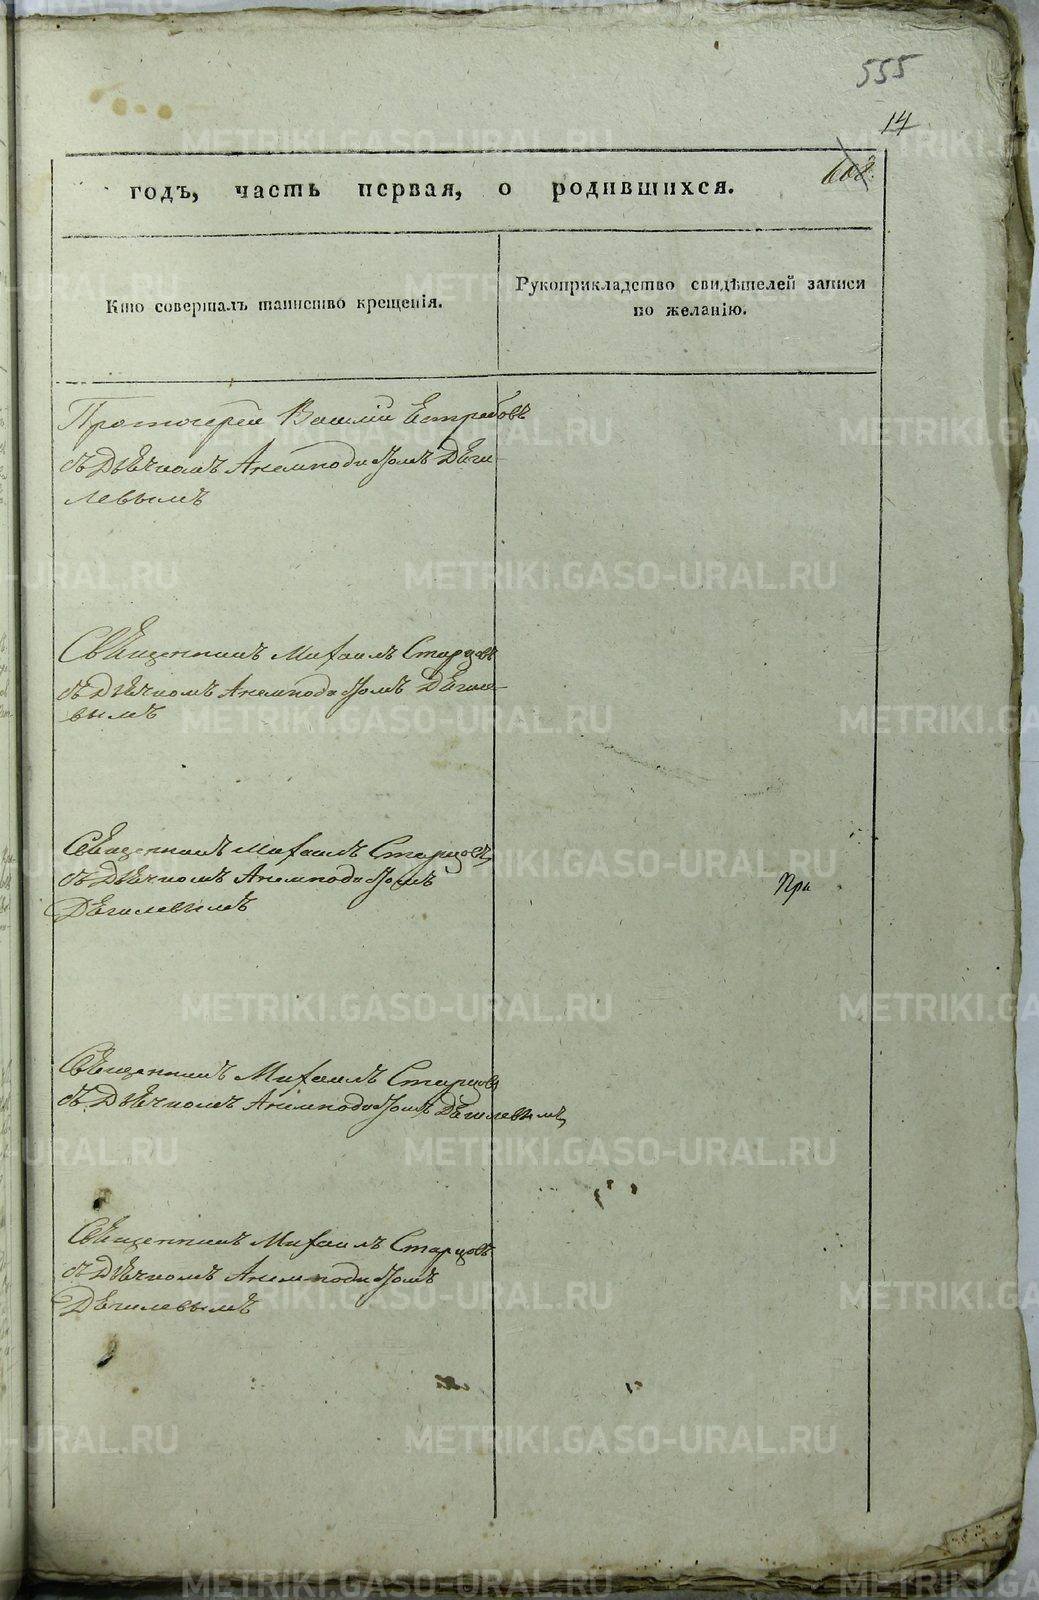 555
14
608
годъ, часть первая, о родившихся.
Кто совершалъ таинство крещенія.
Рукоприкладство свидѣтелей записи
по желанію.
Протоіерей Василій Ястребовъ
съ Дьячкомъ Анемподистомъ Дяги-
левымъ
Священникъ Михаилъ Старцовъ
съ Дьячкомъ Анемподистомъ Дягиле-
вымъ
Священникъ Михаилъ Старцовъ
съ Дьячкомъ Анемподистомъ
Дягилевымъ
При
Священникъ Михаилъ Старцовъ
съ Дьячкомъ Анемподистомъ Дягилевымъ
Священникъ Михаилъ Старцовъ
съ Дьячкомъ Анемподистомъ
Дягилевымъ
METRIKI.GASO-URAL.RU